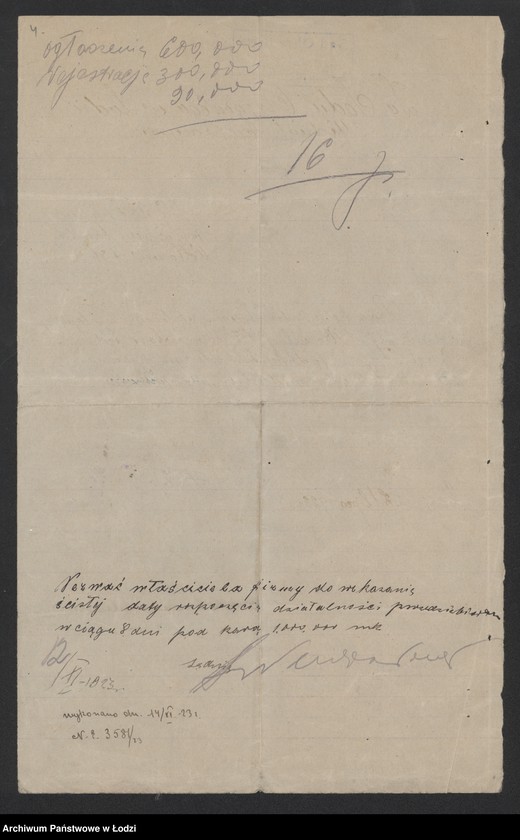 4.
ogłoszenia 600,000
Rejestracje 300,000
90,000
16
Wezwać właściciela firmy do wykazania
ścisłej daty rozpoczęcia działalności przedsiębiorstwa
w ciągu 8 dni pod karą 1,000,000 mk
12/XI-1923.
Sędzia
wykonano dn. 14/XI 23r
N. 2. 3581/23
Archiwum Państwowe w Łodzi